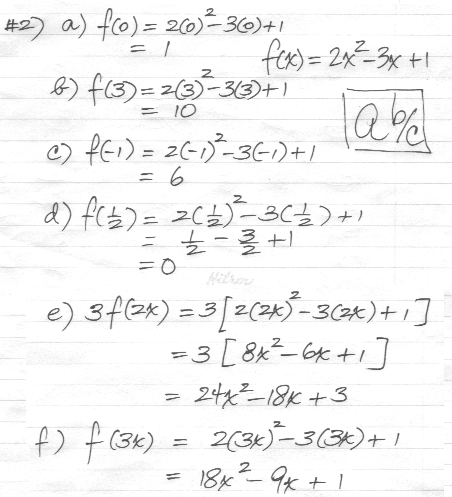 #2) a) f(0) = 2(0)²-3(0)+1
= 1
f(x) = 2x²-3x+1
b) f(3) = 2(3)²-3(3)+1
= 10
a b/c
c) f(-1) = 2(-1)²-3(-1)+1
= 6
d) f(1/2) = 2(1/2)²-3(1/2)+1
= 1/2 - 3/2 +1
= 0
Hilroy
e) 3f(2x) = 3[2(2x)²-3(2x)+1]
= 3[8x²-6x+1]
= 24x²-18x+3
f) f(3x) = 2(3x)²-3(3x)+1
= 18x²-9x+1